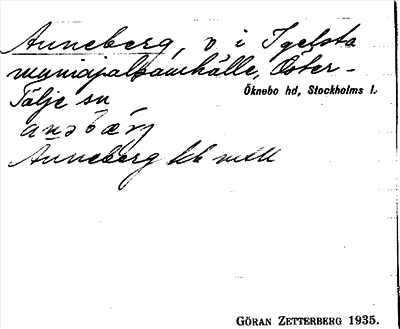 Anneberg, v i Igelsta
municipalsamhälle, Öster-
Tälje sn
Öknebo hd, Stockholms l.
Anneberg
GÖRAN ZETTERBERG 1935.